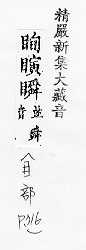 精嚴新集大藏音
眴瞚瞬並音舜
(目部
P.316)